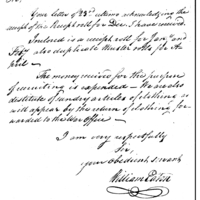 Sir,
Your letter of 23d ultimo acknowledging the
receipt of the Receipt rolls for Decr I have received.
Inclosed is a receipt roll for Jany and
Feby also duplicate Muster rolls for A
pril—
The money received for this purpose
of recruiting is expended — We are also
destitute of sundry articles of clothing as
will appear by the return of clothing for
warded to the War Office —
I am very respectfully
Sir,
your obedient servant
William